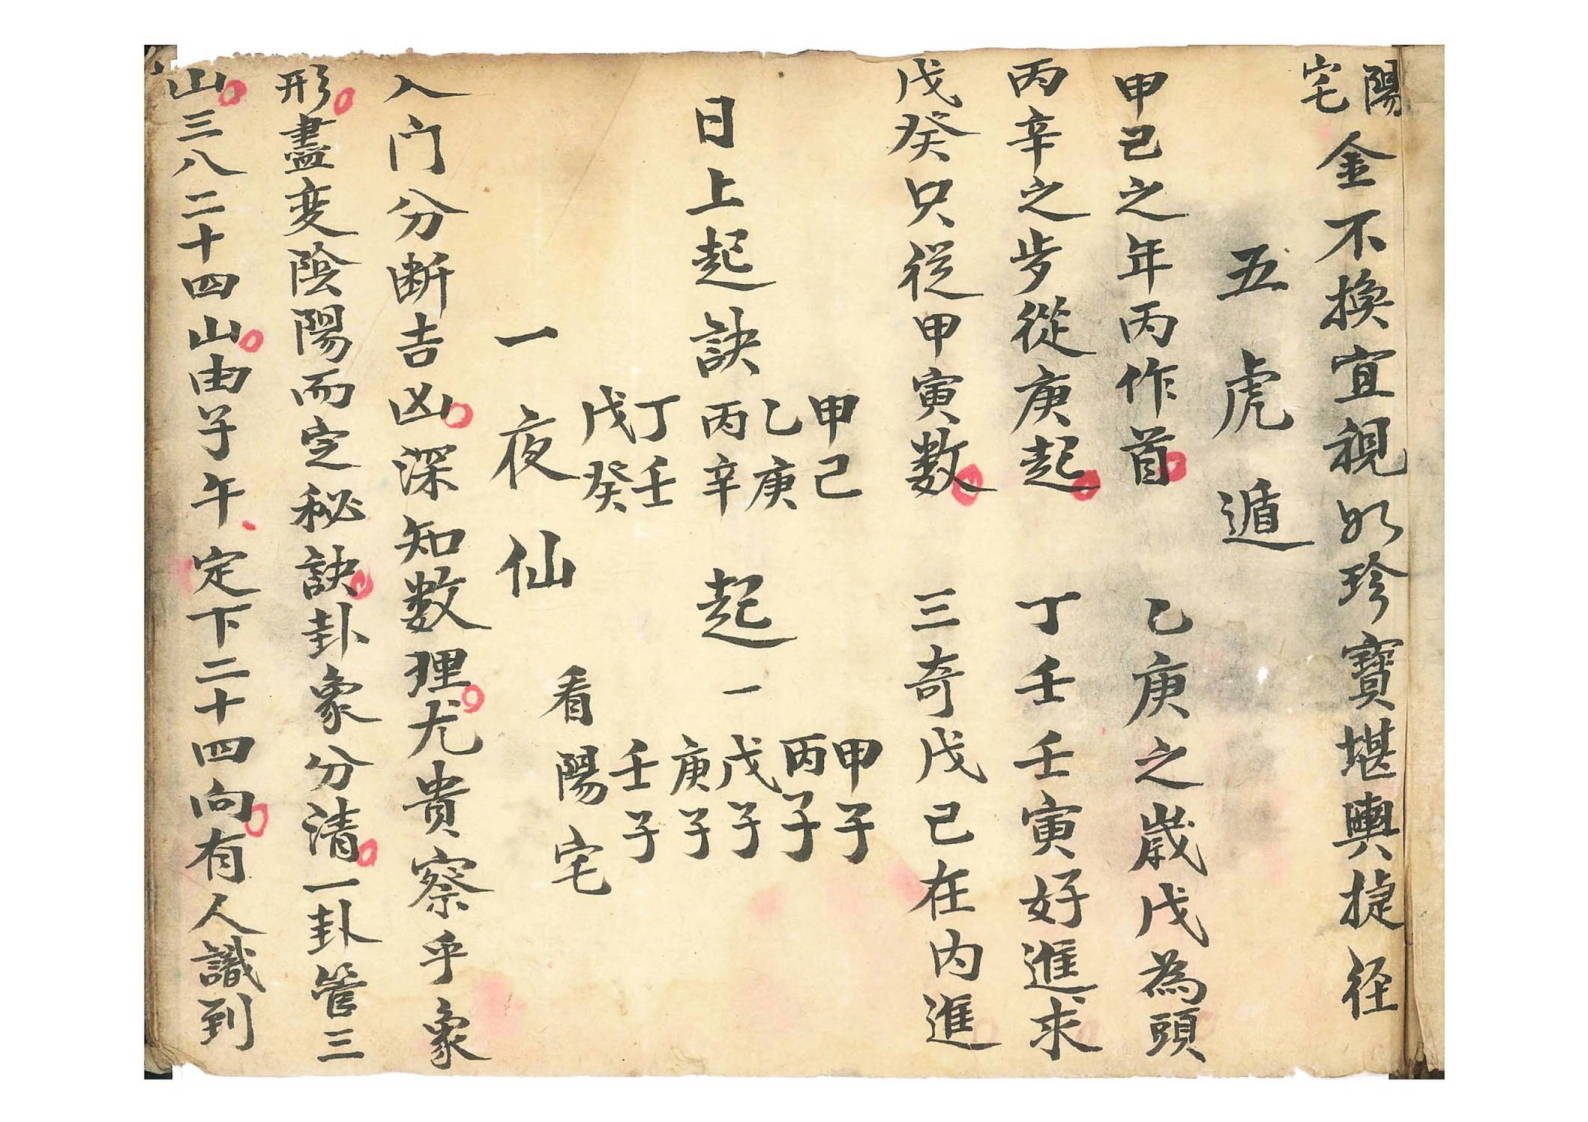 陽宅金不換宜視如珍寶堪輿捷径
五虎遁
甲己之年丙作首 乙庚之歲戊為頭
丙辛之步從庚起 丁壬壬寅好進求
戊癸只從甲寅數 三奇戊己在內進
日上起訣 甲己 乙庚 丙辛 丁壬 戊癸 起 一 甲子 丙子 戊子 庚子 壬子
一夜仙 看陽宅
入门分断吉凶深知数理尤貴察乎象
形盡变陰陽而定秘訣卦象分清一卦管三
山三八二十四山由子午定下二十四向有人識到